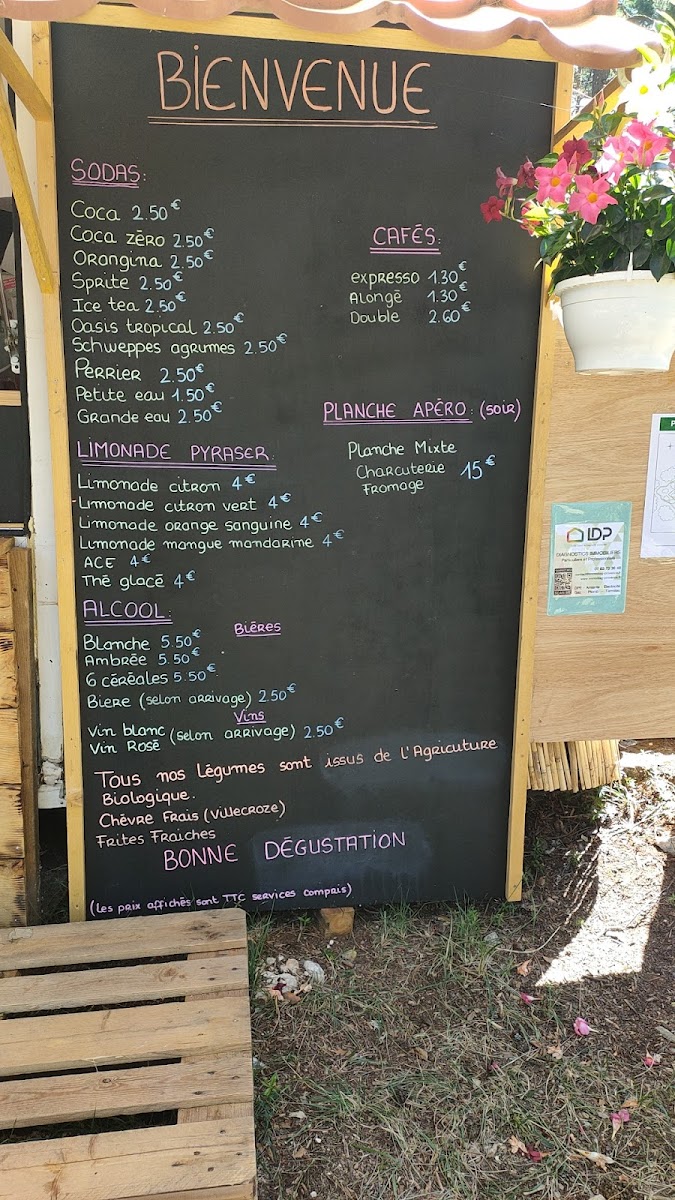 BIENVENUE
SODAS:
Coca 2.50€
Coca zéro 2.50€
Orangina 2.50€
Sprite 2.50€
Ice tea 2.50€
Oasis tropical 2.50€
Schweppes agrumes 2.50€
Perrier 2.50€
Petite eau 1.50€
Grande eau 2.50€
LIMONADE PYRASER:
Limonade citron 4€
Limonade citron vert 4€
Limonade orange sanguine 4€
Limonade mangue mandarine 4€
ACE 4€
Thé glacé 4€
ALCOOL:
Bières
Blanche 5.50€
Ambrée 5.50€
6 céréales 5.50€
Biere (selon arrivage) 2.50€
Vins
Vin blanc (selon arrivage) 2.50€
Vin Rosé
CAFÉS:
expresso 1.30€
Alongé 1.30€
Double 2.60€
PLANCHE APÉRO: (soir)
Planche Mixte
Charcuterie 15€
Fromage
Tous nos légumes sont issus de l'Agricuture
Biologique.
Chèvre Frais (Villecroze)
Frites Fraiches
BONNE DÉGUSTATION
(Les prix affichés sont TTC services compris)
LDP
DIAGNOSTICS IMMOBILIERS